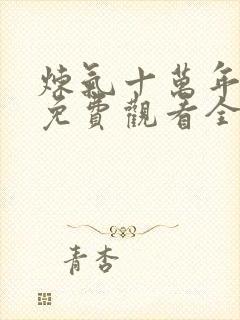 煉氣十萬年
免費觀看全
青杏